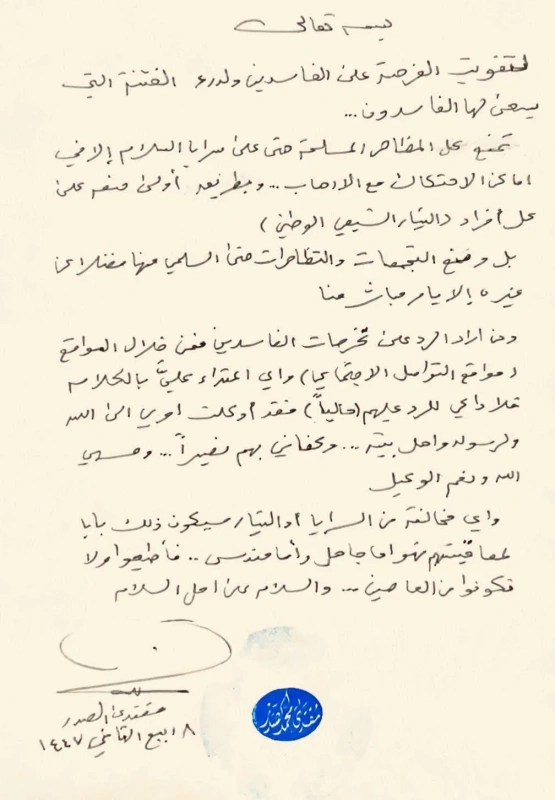 بسمه تعالى
لتفويت الفرصة على الفاسدين ولدرء الفتنة التي
يسعى لها الفاسدون...
تمنع كل المظاهر المسلحة حتى على سرايا السلام إلا في
اماكن الاحتكاك مع الارهاب... وبطريق أولى منعه على
كل أفراد (التيار الشيعي الوطني)
بل ومنع التجمعات والتظاهرات حتى السلمي منها فضلا عن
غيره إلا بأمر مباشر منا
ومن اراد الرد على تخرصات الفاسدين فمن خلال المواقع
(مواقع التواصل الاجتماعي) واي اعتداء عليَّ بالكلام
فلا داعي للرد عليهم (حالياً) فقد أوكلت امري الى الله
ولرسوله واهل بيته... وكفاني بهم نصيراً... وحسبي
الله ونعم الوكيل
واي مخالفة من السرايا أو التيار سيكون ذلك بابا
لمعاقبتهم فهو اما جاهل وأما مندس.. فأطيعوا ولا
تكونوا من العاصين... والسلام على اهل السلام
مقتدى الصدر
٨ ربيع الثاني ١٤٤٧